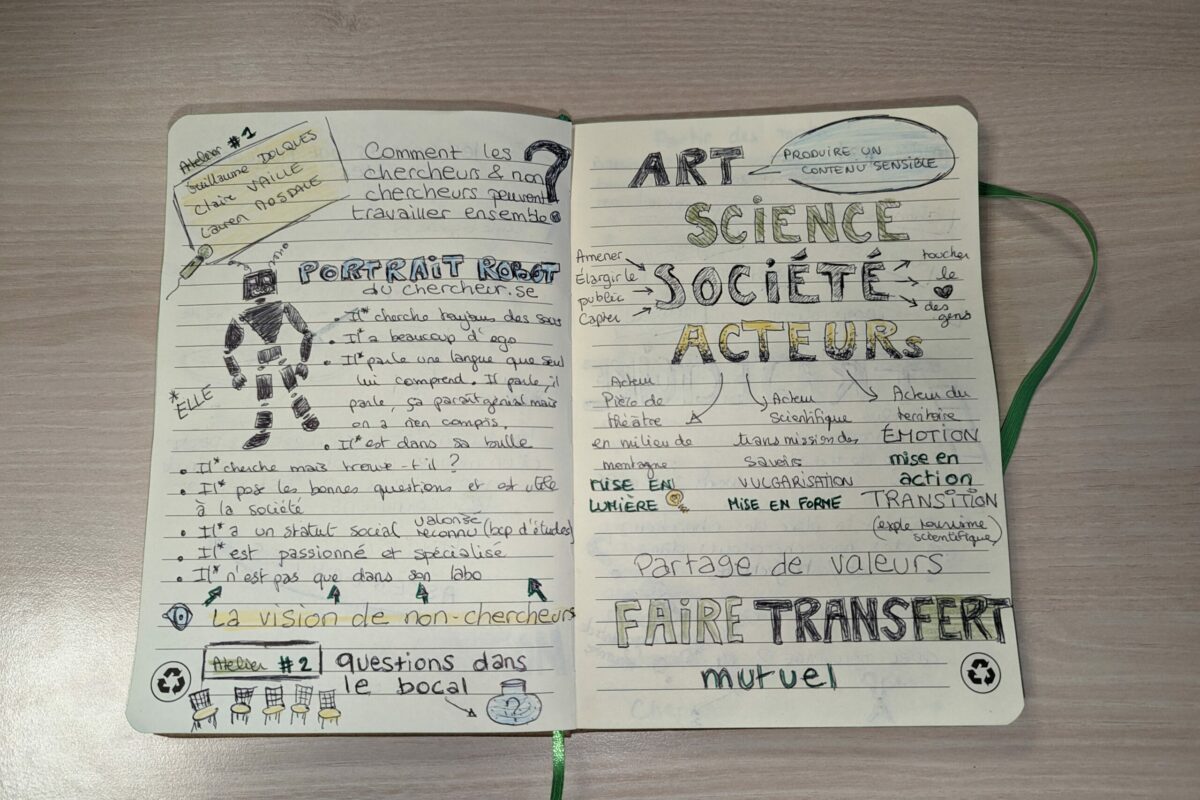 Atelier #1
Guillaume DOLQUES
Claire VAILLE
Lauren
Comment les
chercheurs & non
chercheurs peuvent
travailler ensemble ?
PORTRAIT ROBOT
du chercheur.se
*ELLE
• Il* cherche toujours des sous
• Il* a beaucoup d'ego
• Il* parle une langue que seul
lui comprend. Il parle, il
parle, ça paraît génial mais
on a rien compris.
• Il* est dans sa bulle
• Il* cherche mais trouve-t'il ?
• Il* pose les bonnes questions et est utile
à la société
• Il* a un statut social valorisé
reconnu (bcp d'études)
• Il* est passionné et spécialisé
• Il* n'est pas que dans son labo
La vision de non-chercheurs
Atelier #2
questions dans
le bocal
?
ART
PRODUIRE UN
CONTENU SENSIBLE
SCIENCE
Amener
Élargir le
public
Capter
SOCIÉTÉ
toucher
le
des
gens
ACTEURs
Acteur
Pièce de
théâtre
en milieu de
montagne
MISE EN
LUMIÈRE
Acteur
scientifique
transmission des
savoirs
VULGARISATION
MISE EN FORME
Acteur du
territoire
ÉMOTION
mise en
action
TRANSITION
(exple tourisme
scientifique)
Partage de valeurs
FAIRE TRANSFERT
mutuel